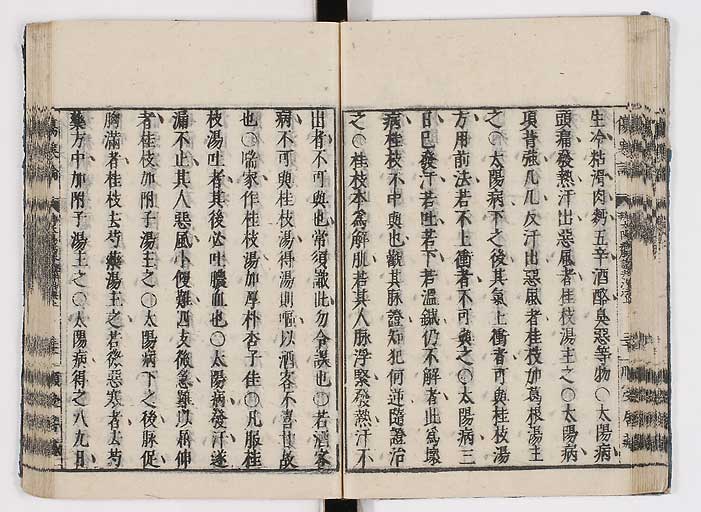 生冷粘滑肉麪五辛酒酪臭惡等物〇太陽病
頭痛發熱汗出惡風者桂枝湯主之〇太陽病
項背強几几反汗出惡風者桂枝加葛根湯主
之〇太陽病下之後其氣上衝者可與桂枝湯
方用前法若不上衝者不可與之〇太陽病三
日已發汗若吐若下若溫鍼仍不解者此爲壞
病桂枝不中與也觀其脉證知犯何逆隨證治
之〇桂枝本爲解肌若其人脉浮緊發熱汗不
出者不可與也常須識此勿令誤也〇若酒客
病不可與桂枝湯得湯則嘔以酒客不喜甘故
也〇喘家作桂枝湯加厚朴杏子佳〇凡服桂
枝湯吐者其後必吐膿血也〇太陽病發汗遂
漏不止其人惡風小便難四支微急難以屈伸
者桂枝加附子湯主之〇太陽病下之後脉促
胸滿者桂枝去芍藥湯主之若微惡寒者去芍
藥方中加附子湯主之〇太陽病得之八九日
傷寒論
傷寒論